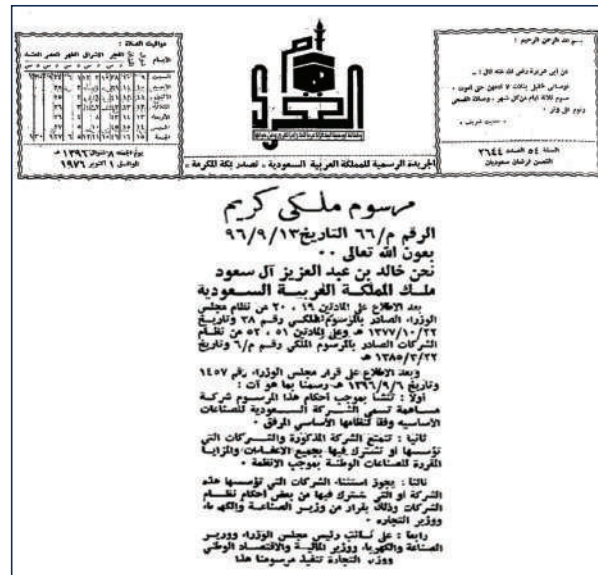 بسم الله الرحمن الرحيم :
عن أبي هريرة رضي الله عنه قال : ـ
- حديث شريف -
السنة ٥٤ العدد ٢٦٤٤
الثمن قرشان سعوديان
أم القرى
الجريدة الرسمية للمملكة العربية السعودية ـ تصدر بمكة المكرمة
مواقيت الصلاة :
الأيام الفجر الإشراق الظهر العصر العشاء
يوم الجمعة ٨ شوال ١٣٩٦ هـ
الموافق ١ أكتوبر ١٩٧٦
مرسوم ملكي كريم
الرقم م/٦٦ التاريخ ٩٦/٩/١٣
بعون الله تعالى ٠٠
نحن خالد بن عبد العزيز آل سعود
ملك المملكة العربية السعودية
بعد الاطلاع على المادتين ١٩ ، ٢٠ من نظام مجلس
الوزراء الصادر بالمرسوم الملكي رقم ٣٨ وتاريخ
١٣٧٧/١٠/٢٢ هـ وعلى المادتين ٥١ ، ٥٢ من نظام
الشركات الصادر بالمرسوم الملكي رقم م/٦ وتاريخ
١٣٨٥/٣/٢٢ هـ
وبعد الاطلاع على قرار مجلس الوزراء رقم ١٤٥٧
وتاريخ ١٣٩٦/٩/٦ هـ رسمنا بما هو آت :
أولا : تنشأ بموجب أحكام هذا المرسوم شركة
مساهمة تسمى الشركة السعودية للصناعات
الأساسية وفقا لنظامها الأساسي المرفق ٠
ثانيا : تتمتع الشركة المذكورة والشركات التي
تؤسسها أو تشترك فيها بجميع الإعفاءات والمزايا
المقررة للصناعات الوطنية بموجب الأنظمة ٠
ثالثا : يجوز استثناء الشركات التي تؤسسها هذه
الشركة أو التي تشترك فيها من بعض أحكام نظام
الشركات وذلك بقرار من وزير الصناعة والكهرباء
ووزير التجارة ٠
رابعا : على نائب رئيس مجلس الوزراء ووزير
الصناعة والكهرباء ووزير المالية والاقتصاد الوطني
ووزير التجارة تنفيذ مرسومنا هذا